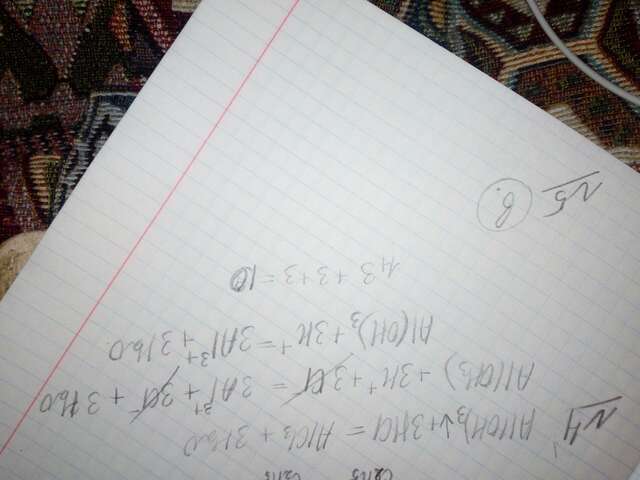 C2H5 C2H5
№4
Al(OH)3↓ + 3HCl = AlCl3 + 3H2O
Al(OH)3 + 3H⁺ + 3Cl⁻ = 3Al³⁺ + 3Cl⁻ + 3H2O
Al(OH)3 + 3H⁺ = 3Al³⁺ + 3H2O
1+3+3+3=10
№5
В.